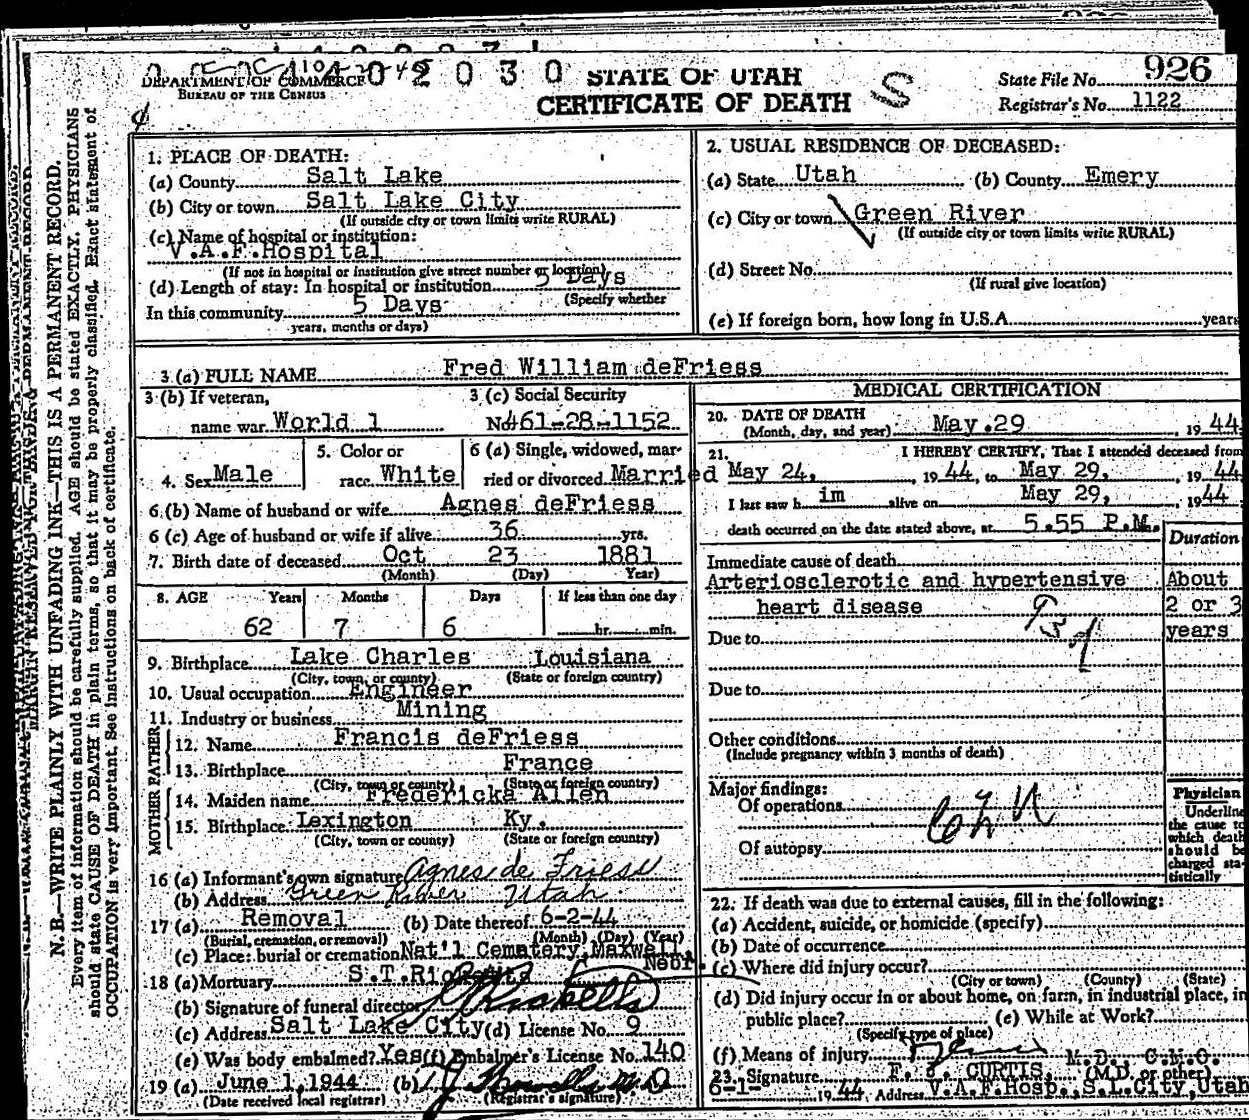 4 0 2 0 3 0
DEPARTMENT OF COMMERCE
BUREAU OF THE CENSUS
STATE OF UTAH
CERTIFICATE OF DEATH
S
State File No. 926
Registrar's No. 1122
N.B.—WRITE PLAINLY WITH UNFADING INK—THIS IS A PERMANENT RECORD.
Every item of information should be carefully supplied. AGE should be stated EXACTLY. PHYSICIANS
should state CAUSE OF DEATH in plain terms, so that it may be properly classified. Exact statement of
OCCUPATION is very important. See instructions on back of certificate.
1. PLACE OF DEATH:
(a) County Salt Lake
(b) City or town Salt Lake City
(If outside city or town limits write RURAL)
(c) Name of hospital or institution:
V.A.F.Hospital
(If not in hospital or institution give street number or location)
(d) Length of stay: In hospital or institution 5 Days
(Specify whether
In this community 5 Days
years, months or days)
2. USUAL RESIDENCE OF DECEASED:
(a) State Utah (b) County Emery
(c) City or town Green River
(If outside city or town limits write RURAL)
(d) Street No.
(If rural give location)
(e) If foreign born, how long in U.S.A. years
3 (a) FULL NAME Fred William deFriess
3 (b) If veteran,
name war World 1
3 (c) Social Security
No 461-28-1152
4. Sex Male
5. Color or
race White
6 (a) Single, widowed, mar-
ried or divorced Married
6 (b) Name of husband or wife Agnes deFriess
6 (c) Age of husband or wife if alive 36 yrs.
7. Birth date of deceased Oct 23 1881
(Month) (Day) Year)
8. AGE Years Months Days If less than one day
62 7 6 hr. min.
9. Birthplace Lake Charles Louisiana
(City, town, or county) (State or foreign country)
10. Usual occupation Engineer
11. Industry or business Mining
FATHER
12. Name Francis deFriess
13. Birthplace France
(City, town or county) (State or foreign country)
MOTHER
14. Maiden name Fredericka Allen
15. Birthplace Lexington Ky.
(City, town or county) (State or foreign country)
16 (a) Informant's own signature Agnes de Friess
(b) Address Green River Utah
17 (a) Removal (b) Date thereof 6-2-44
(Burial, cremation, or removal) (Month) (Day) (Year)
(c) Place: burial or cremation Nat'l Cematery, Maxwell
Nebr.
18 (a) Mortuary S.T.
(b) Signature of funeral director
(c) Address Salt Lake City (d) License No. 9
(e) Was body embalmed? Yes (f) Embalmer's License No. 140
19 (a) June 1,1944 (b)
(Date received local registrar) (Registrar's signature)
MEDICAL CERTIFICATION
20. DATE OF DEATH
(Month, day, and year) May.29, 1944
21. I HEREBY CERTIFY, That I attended deceased from
May 24, 1944, to May 29, 1944
I last saw h im alive on May 29, 1944
death occurred on the date stated above, at 5.55 P.M.
Duration
Immediate cause of death
Arteriosclerotic and hypertensive About
heart disease 2 or 3
Due to years
Due to
Other conditions
(Include pregnancy within 3 months of death)
Major findings:
Of operations
Of autopsy
Physician
Underline
the cause to
which death
should be
charged sta-
tistically
22. If death was due to external causes, fill in the following:
(a) Accident, suicide, or homicide (specify)
(b) Date of occurrence
(c) Where did injury occur?
(City or town) (County) (State)
(d) Did injury occur in or about home, on farm, in industrial place, in
public place? (e) While at Work?
(Specify type of place)
(f) Means of injury
23. Signature CURTIS, M.D., C.M.O.
(M.D. or other)
6-1 1944 Address V.A.F.Hosp.,S.L.City,Utah